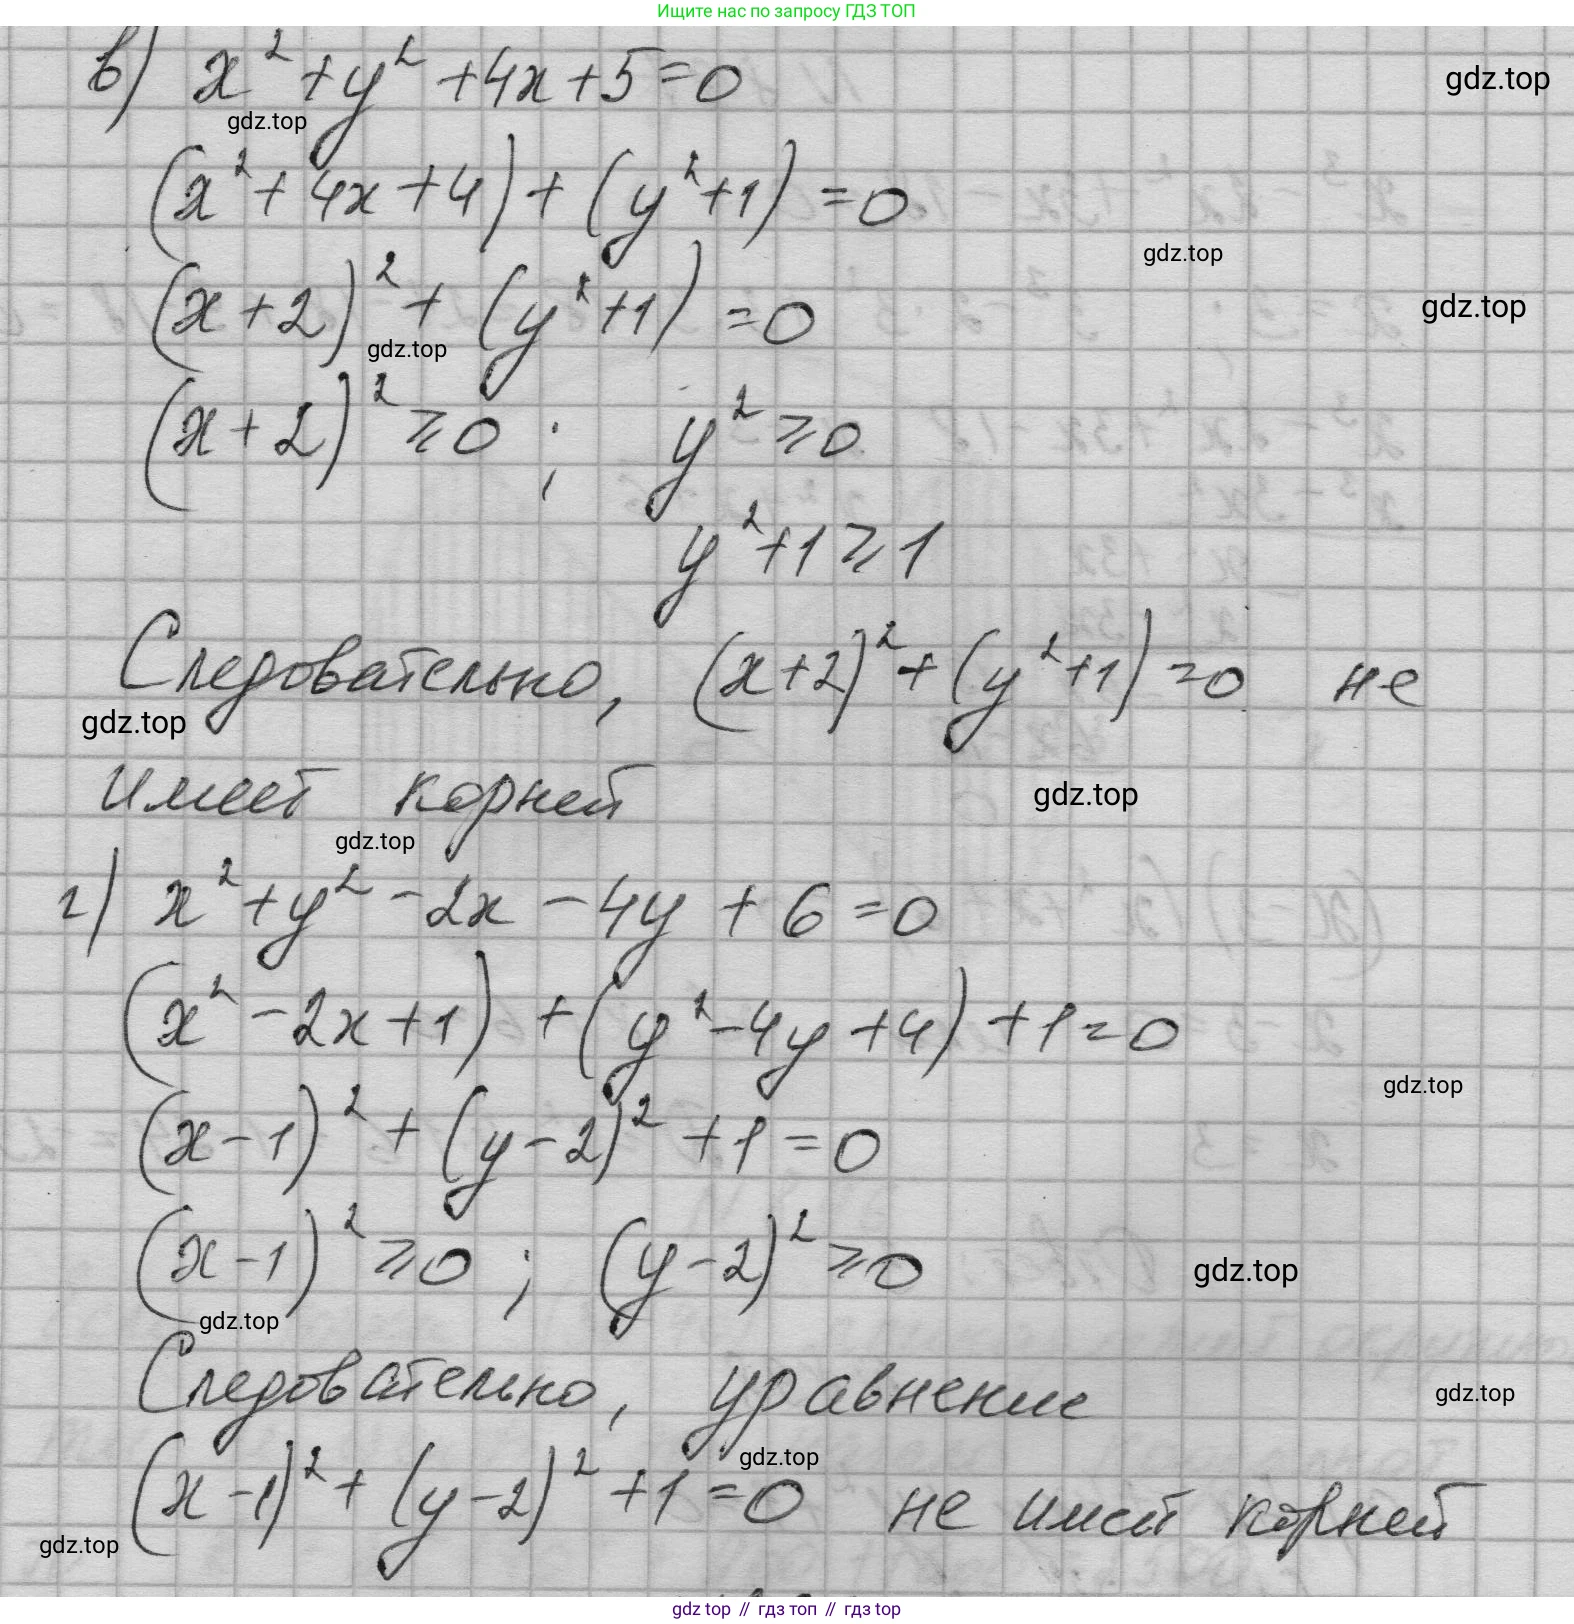 Ищите нас по запросу ГДЗ ТОП
в) x² + y² + 4x + 5 = 0
gdz.top
gdz.top
(x² + 4x + 4) + (y² + 1) = 0
gdz.top
(x + 2)² + (y² + 1) = 0
gdz.top
gdz.top
(x + 2)² ⩾ 0 ; y² ⩾ 0
y² + 1 ⩾ 1
Следовательно, (x + 2)² + (y² + 1) = 0 не
gdz.top
имеет корней
gdz.top
gdz.top
г) x² + y² - 2x - 4y + 6 = 0
(x² - 2x + 1) + (y² - 4y + 4) + 1 = 0
gdz.top
(x - 1)² + (y - 2)² + 1 = 0
(x - 1)² ⩾ 0 ; (y - 2)² ⩾ 0
gdz.top
gdz.top
Следовательно, уравнение
gdz.top
gdz.top
(x - 1)² + (y - 2)² + 1 = 0 не имеет корней
gdz.top
gdz top // гдз топ // гдз top